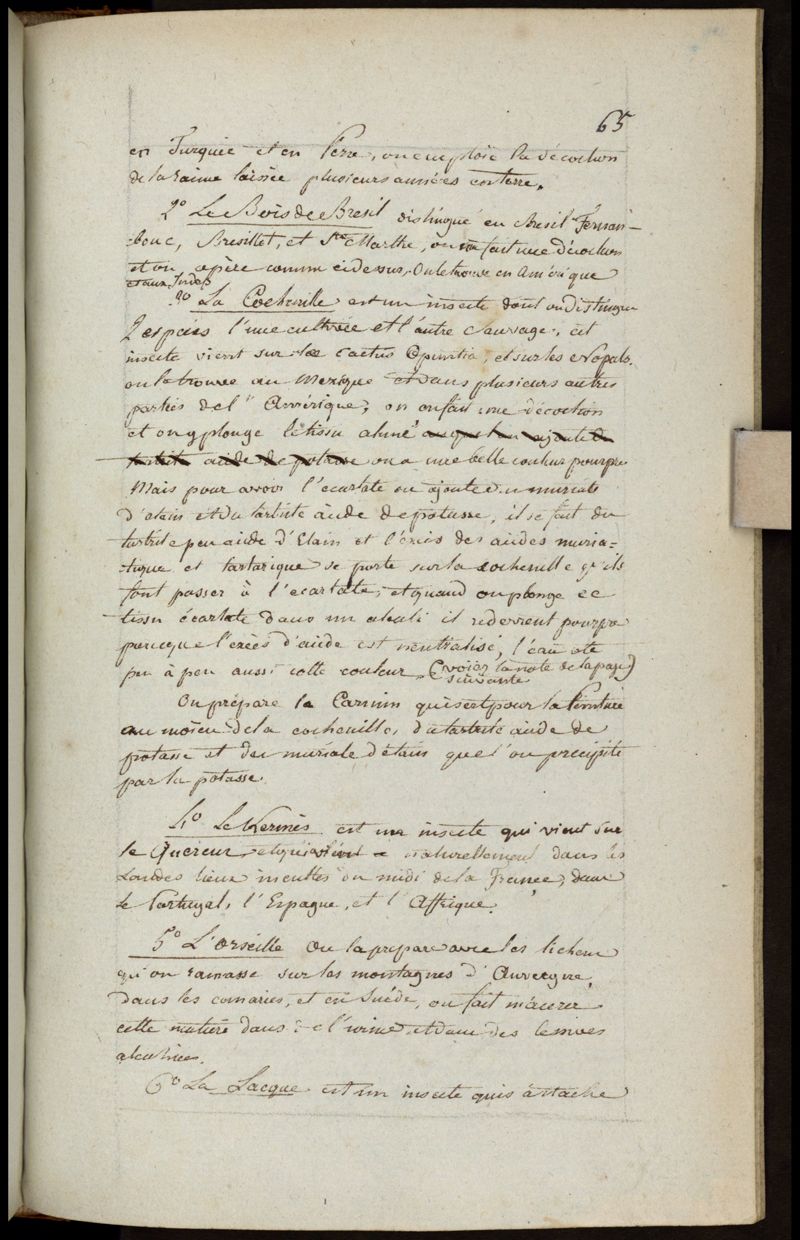 65
en Turquie et en Perse, on emploïe la décoction
de la racine laissée plusieurs années en terre.
2º Le Bois de Bresil distingué en Bresil Fernan-
-bouc, Bresillet, et Ste Marthe, on en fait une décoction
et on opère comme ci dessus. On le trouve en Amérique
et aux Indes
3º La Cochenille est un insecte dont on distingue
2 espèces l'une cultivée et l'autre sauvage, cet
insecte vient sur les Cactus Opuntia, et sur les Nopals.
on le trouve au Mexique et dans plusieurs autres
parties de l'Amérique, on en fait une décoction
et on y plonge le tissu aluné auquel on ajoute du
tartrite acide de potasse on a une belle couleur pourpre
Mais pour avoir l'ecarlate on ajoute du muriate
d'etain et du tartrite acide de potasse, il se fait du
tartrite peu acide d'Etain et l'excès des acides muria=
-tique et tartarique se porte sur la cochenille qu'ils
font passer à l'ecarlate, et quand on plonge ce
tissu écarlate dans un alcali il redevient pourpre
parceque l'excès d'acide est neutralisé, l'eau ote
peu à peu aussi cette couleur (voiez la note de la page)
suivante
On prépare le Carmin qui sert pour la Peinture
au moïen de la cochenille, du tartrite acide de
potasse et du muriate d'étain que l'on précipite
par la potasse.
4º Le Kermès est un insecte qui vient sur
le Quercus et qui vient naturellement dans les
Landes lieux incultes du midi de la France, dans
le Portugal, l'Espagne, et l'Affrique.
5º L'Orseille On la prépare avec les lichens
qu'on ramasse sur les montagnes d'Auvergne,
dans les canaries, et en Suède, on fait macerer
cette matière dans l'urine et dans des lessives
alcalines.
6º La Lacque est un insecte qui s'attache